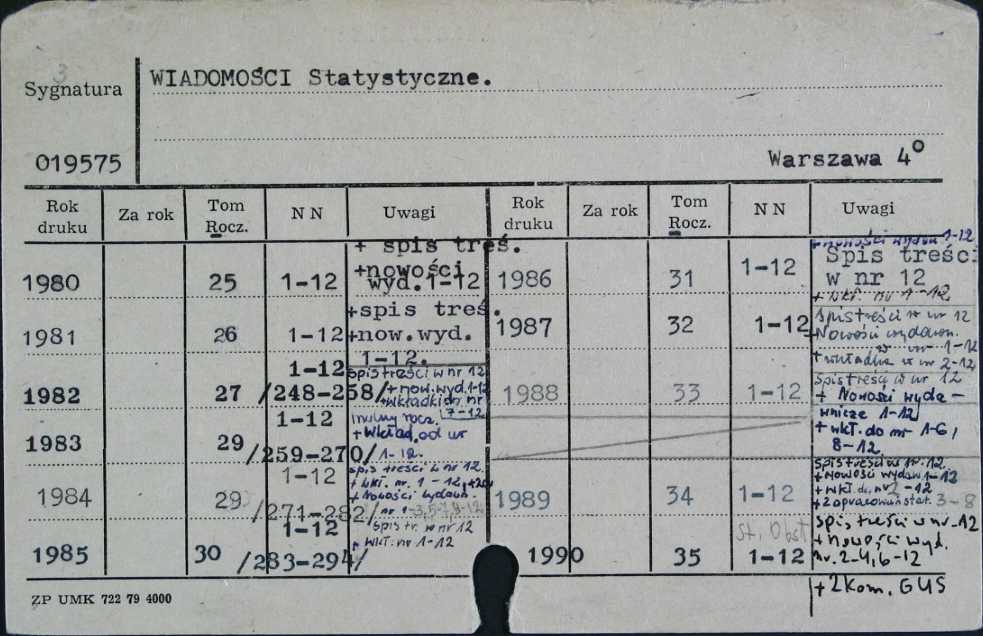 3
Sygnatura
WIADOMOŚCI Statystyczne.
019575
Warszawa 4°
Rok druku Za rok Tom Rocz. NN Uwagi Rok druku Za rok Tom Rocz. NN Uwagi
1980 25 1-12 + spis treś.
+nowości
wyd. 1-12
1981 26 1-12 +spis treś.
+now.wyd.
1-12.
1982 27 1-12 /248-258/ Spis treści w nr 12
+ now.wyd.1-12
+wkładki nr
7-12
1983 29 1-12 /259-270/
+ wkład. od nr
1-12.
1984 29 1-12 /271-282/ spis treści w nr 12.
+ wkł. nr. 1-12,
+ Nowości wydawn.
nr 1-3,5-7,8-12
1985 30 1-12 /283-294/ Spis tr. w nr 12
+ wkł. nr 1-12
1986 31 1-12 + Nowości wydawn 1-12
Spis treści
w nr 12
+ wkł. nr 1-12
1987 32 1-12 Spis treści w nr 12
+Nowości wydawn.
w nr 1-12
+ wkładka w nr 2-12
1988 33 1-12 Spis treści w nr 12
+ Nowości wyda-
wnicze 1-12
+ wkł. do nr 1-6,
8-12
1989 34 1-12 Spis treści w nr. 12
+ Nowości wydawn 1-12
+ wkł. do nr 2-12
+ 2 opracowań stat. 3-8
1990 35 1-12 Spis treści w nr 12
+ Nowości wyd.
nr. 2-4, 6-12
+ 2 kom. GUS
ZP UMK 722 79 4000